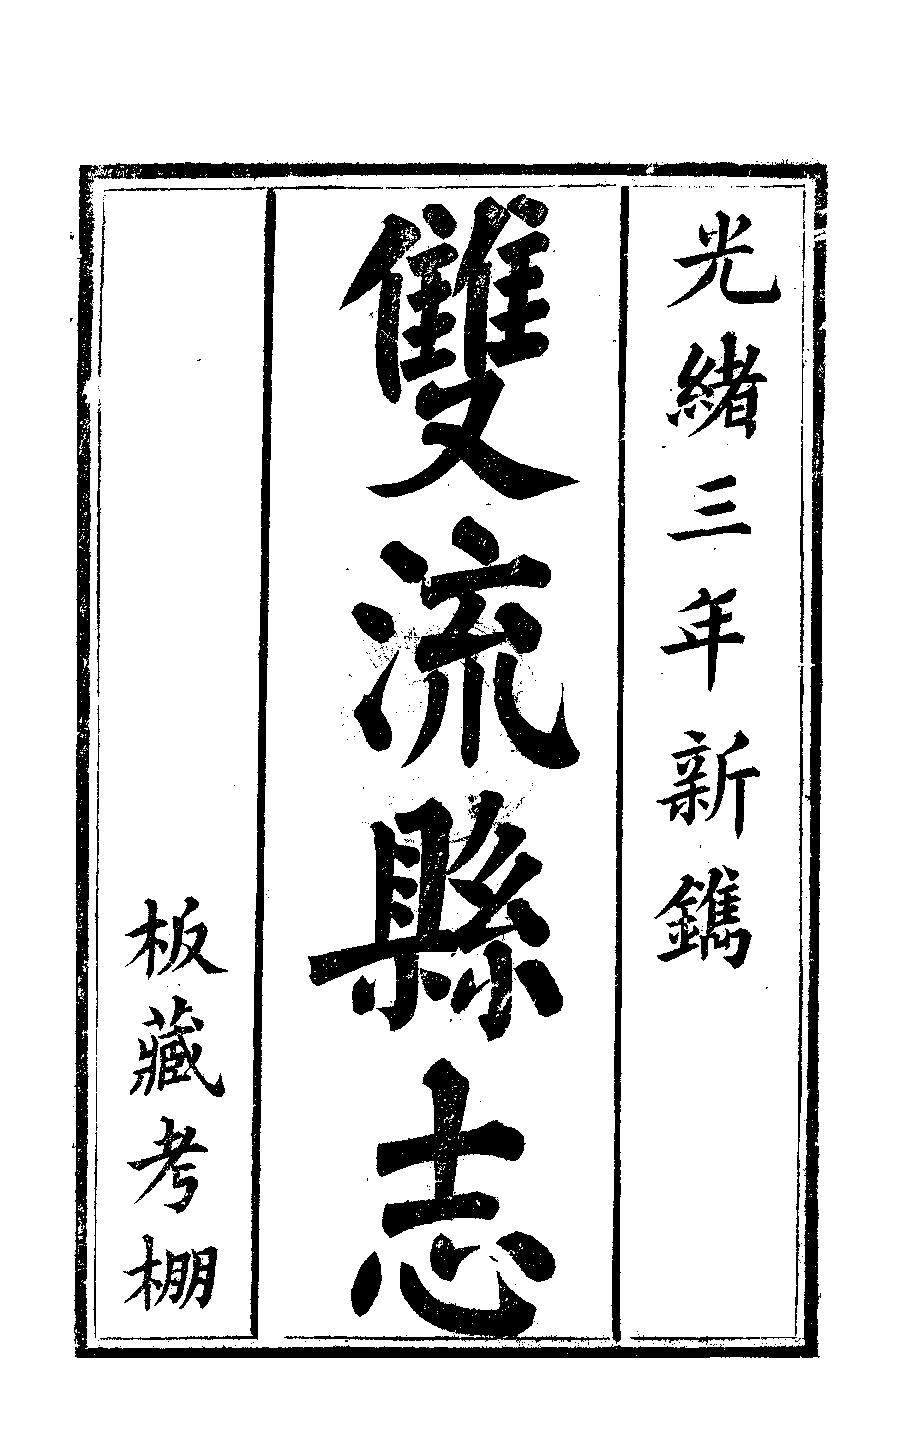 光緒三年新鐫
雙流縣志
板藏考棚